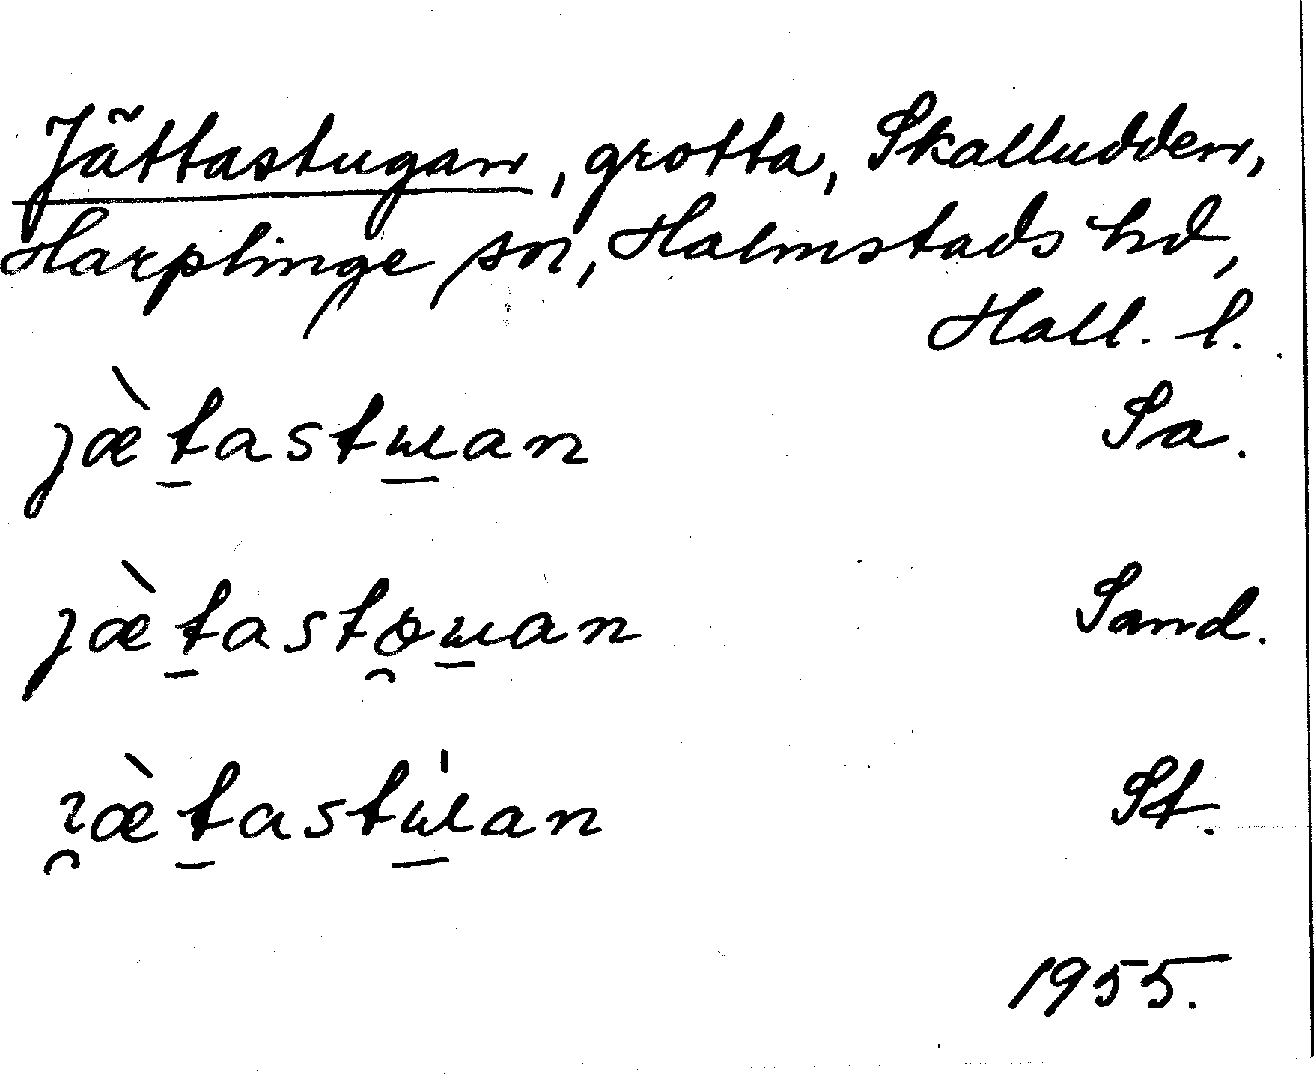 Jättastugan, grotta, Skalludden,
Harplinge sn, Halmstads hd,
Hall. l.
jæ̀ṯastɯ̱an Sa.
jæ̀ṯasto̯ɯ̱an Sand.
ɿ̯æ̀ṯastɯ̱̍an St.
1955.